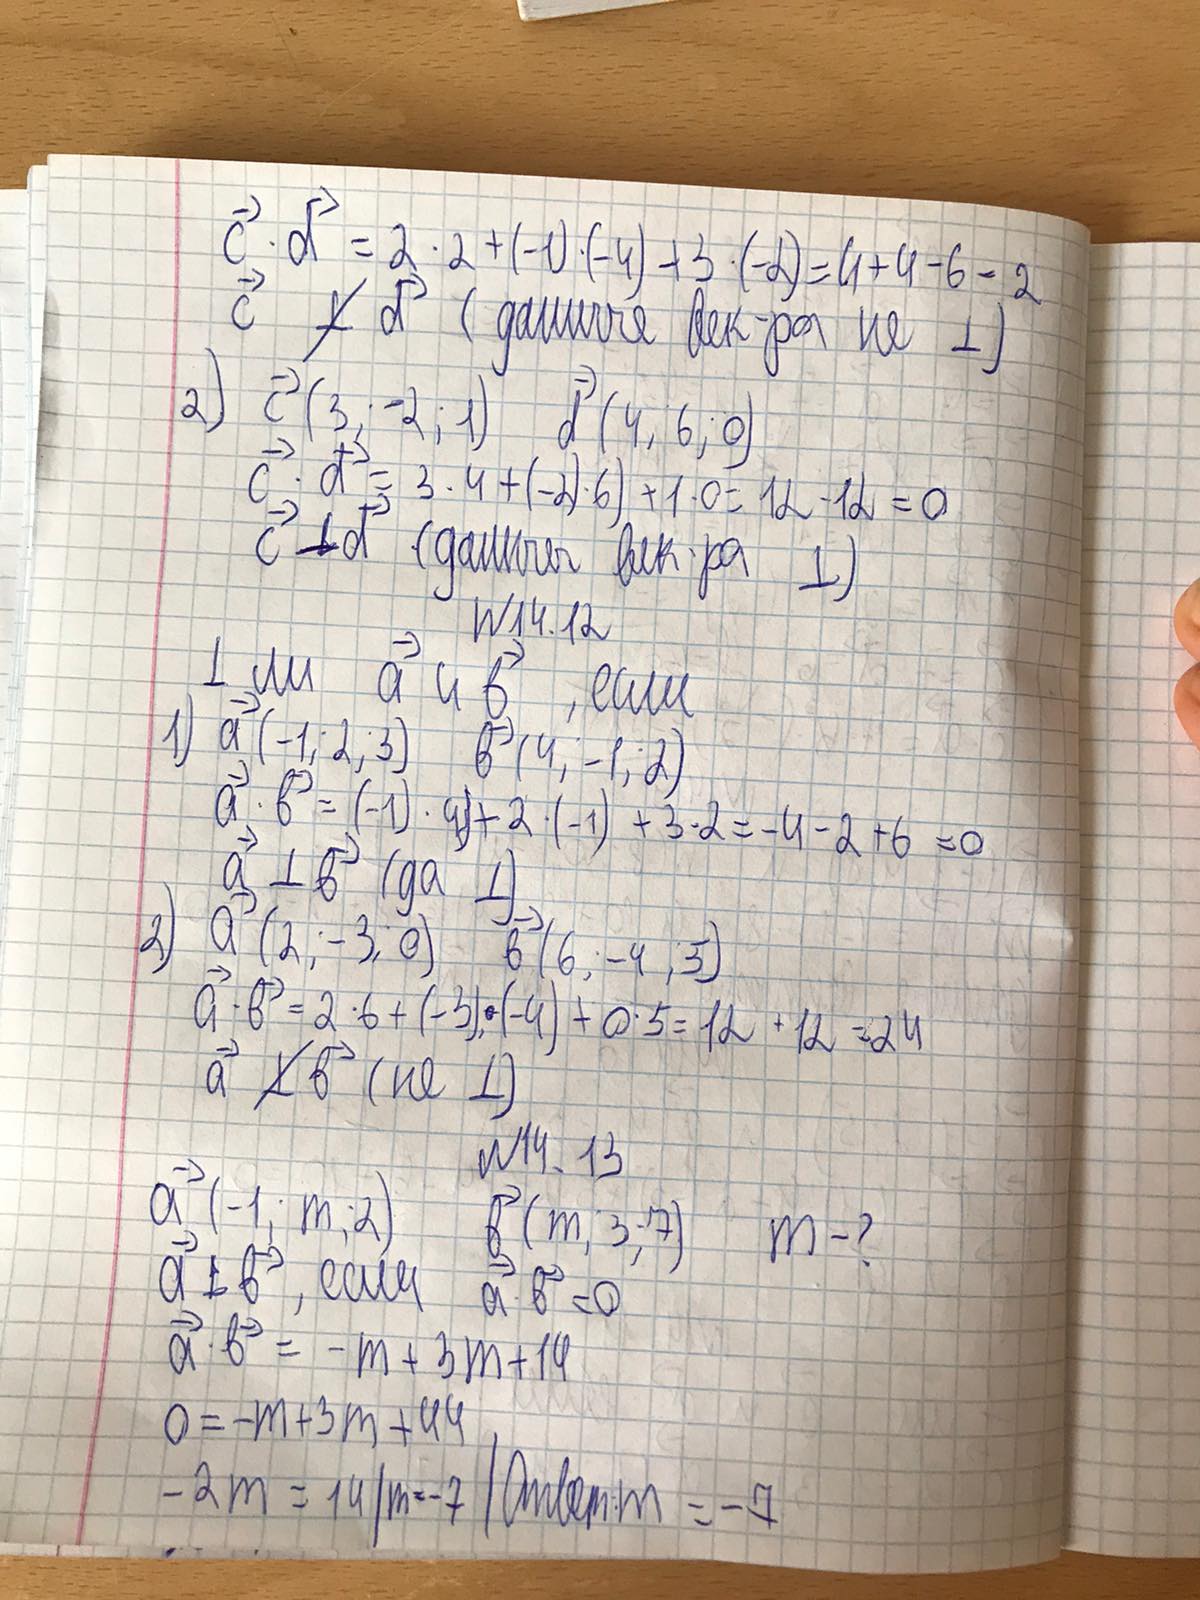 c⃗ · d⃗ = 2 · 2 + (-1) · (-4) + 3 · (-2) = 4 + 4 - 6 = 2
c⃗ ⊥̸ d⃗ (данные век-ра не ⊥)
2) c⃗ (3; -2; 1) d⃗ (4; 6; 0)
c⃗ · d⃗ = 3 · 4 + (-2) · 6) + 1 · 0 = 12 - 12 = 0
c⃗ ⊥ d⃗ (данные век-ра ⊥)
N14.12
⊥ ли a⃗ и b⃗, если
1) a⃗ (-1; 2; 3) b⃗ (4; -1; 2)
a⃗ · b⃗ = (-1) · 4) + 2 · (-1) + 3 · 2 = -4 - 2 + 6 = 0
a⃗ ⊥ b⃗ (да ⊥)
2) a⃗ (2; -3; 0) b⃗ (6; -4; 5)
a⃗ · b⃗ = 2 · 6 + (-3) · (-4) + 0 · 5 = 12 + 12 = 24
a⃗ ⊥̸ b⃗ (не ⊥)
N14.13
a⃗ (-1; m; 2) b⃗ (m; 3; 7) m - ?
a⃗ ⊥ b⃗, если a⃗ · b⃗ = 0
a⃗ · b⃗ = -m + 3m + 14
0 = -m + 3m + 44
-2m = 14 / m = -7 / Ответ: m = -7